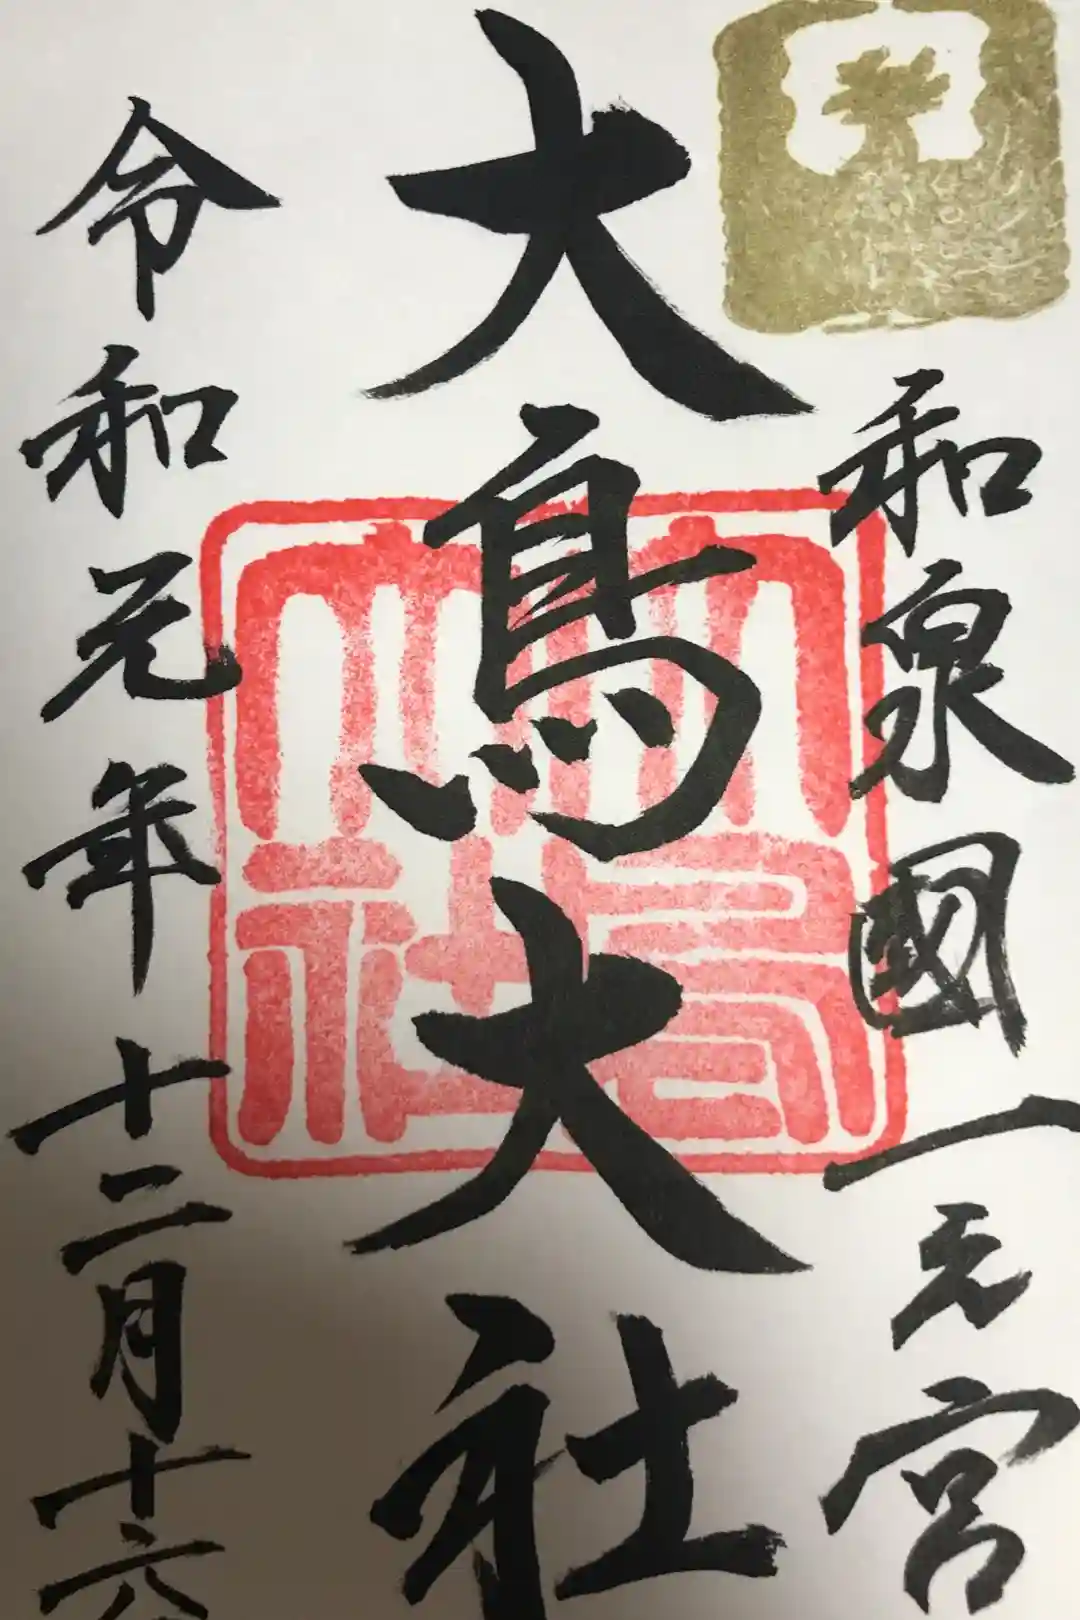 和泉國一之宮
大鳥大社
令和元年十二月十六
大鳥大社